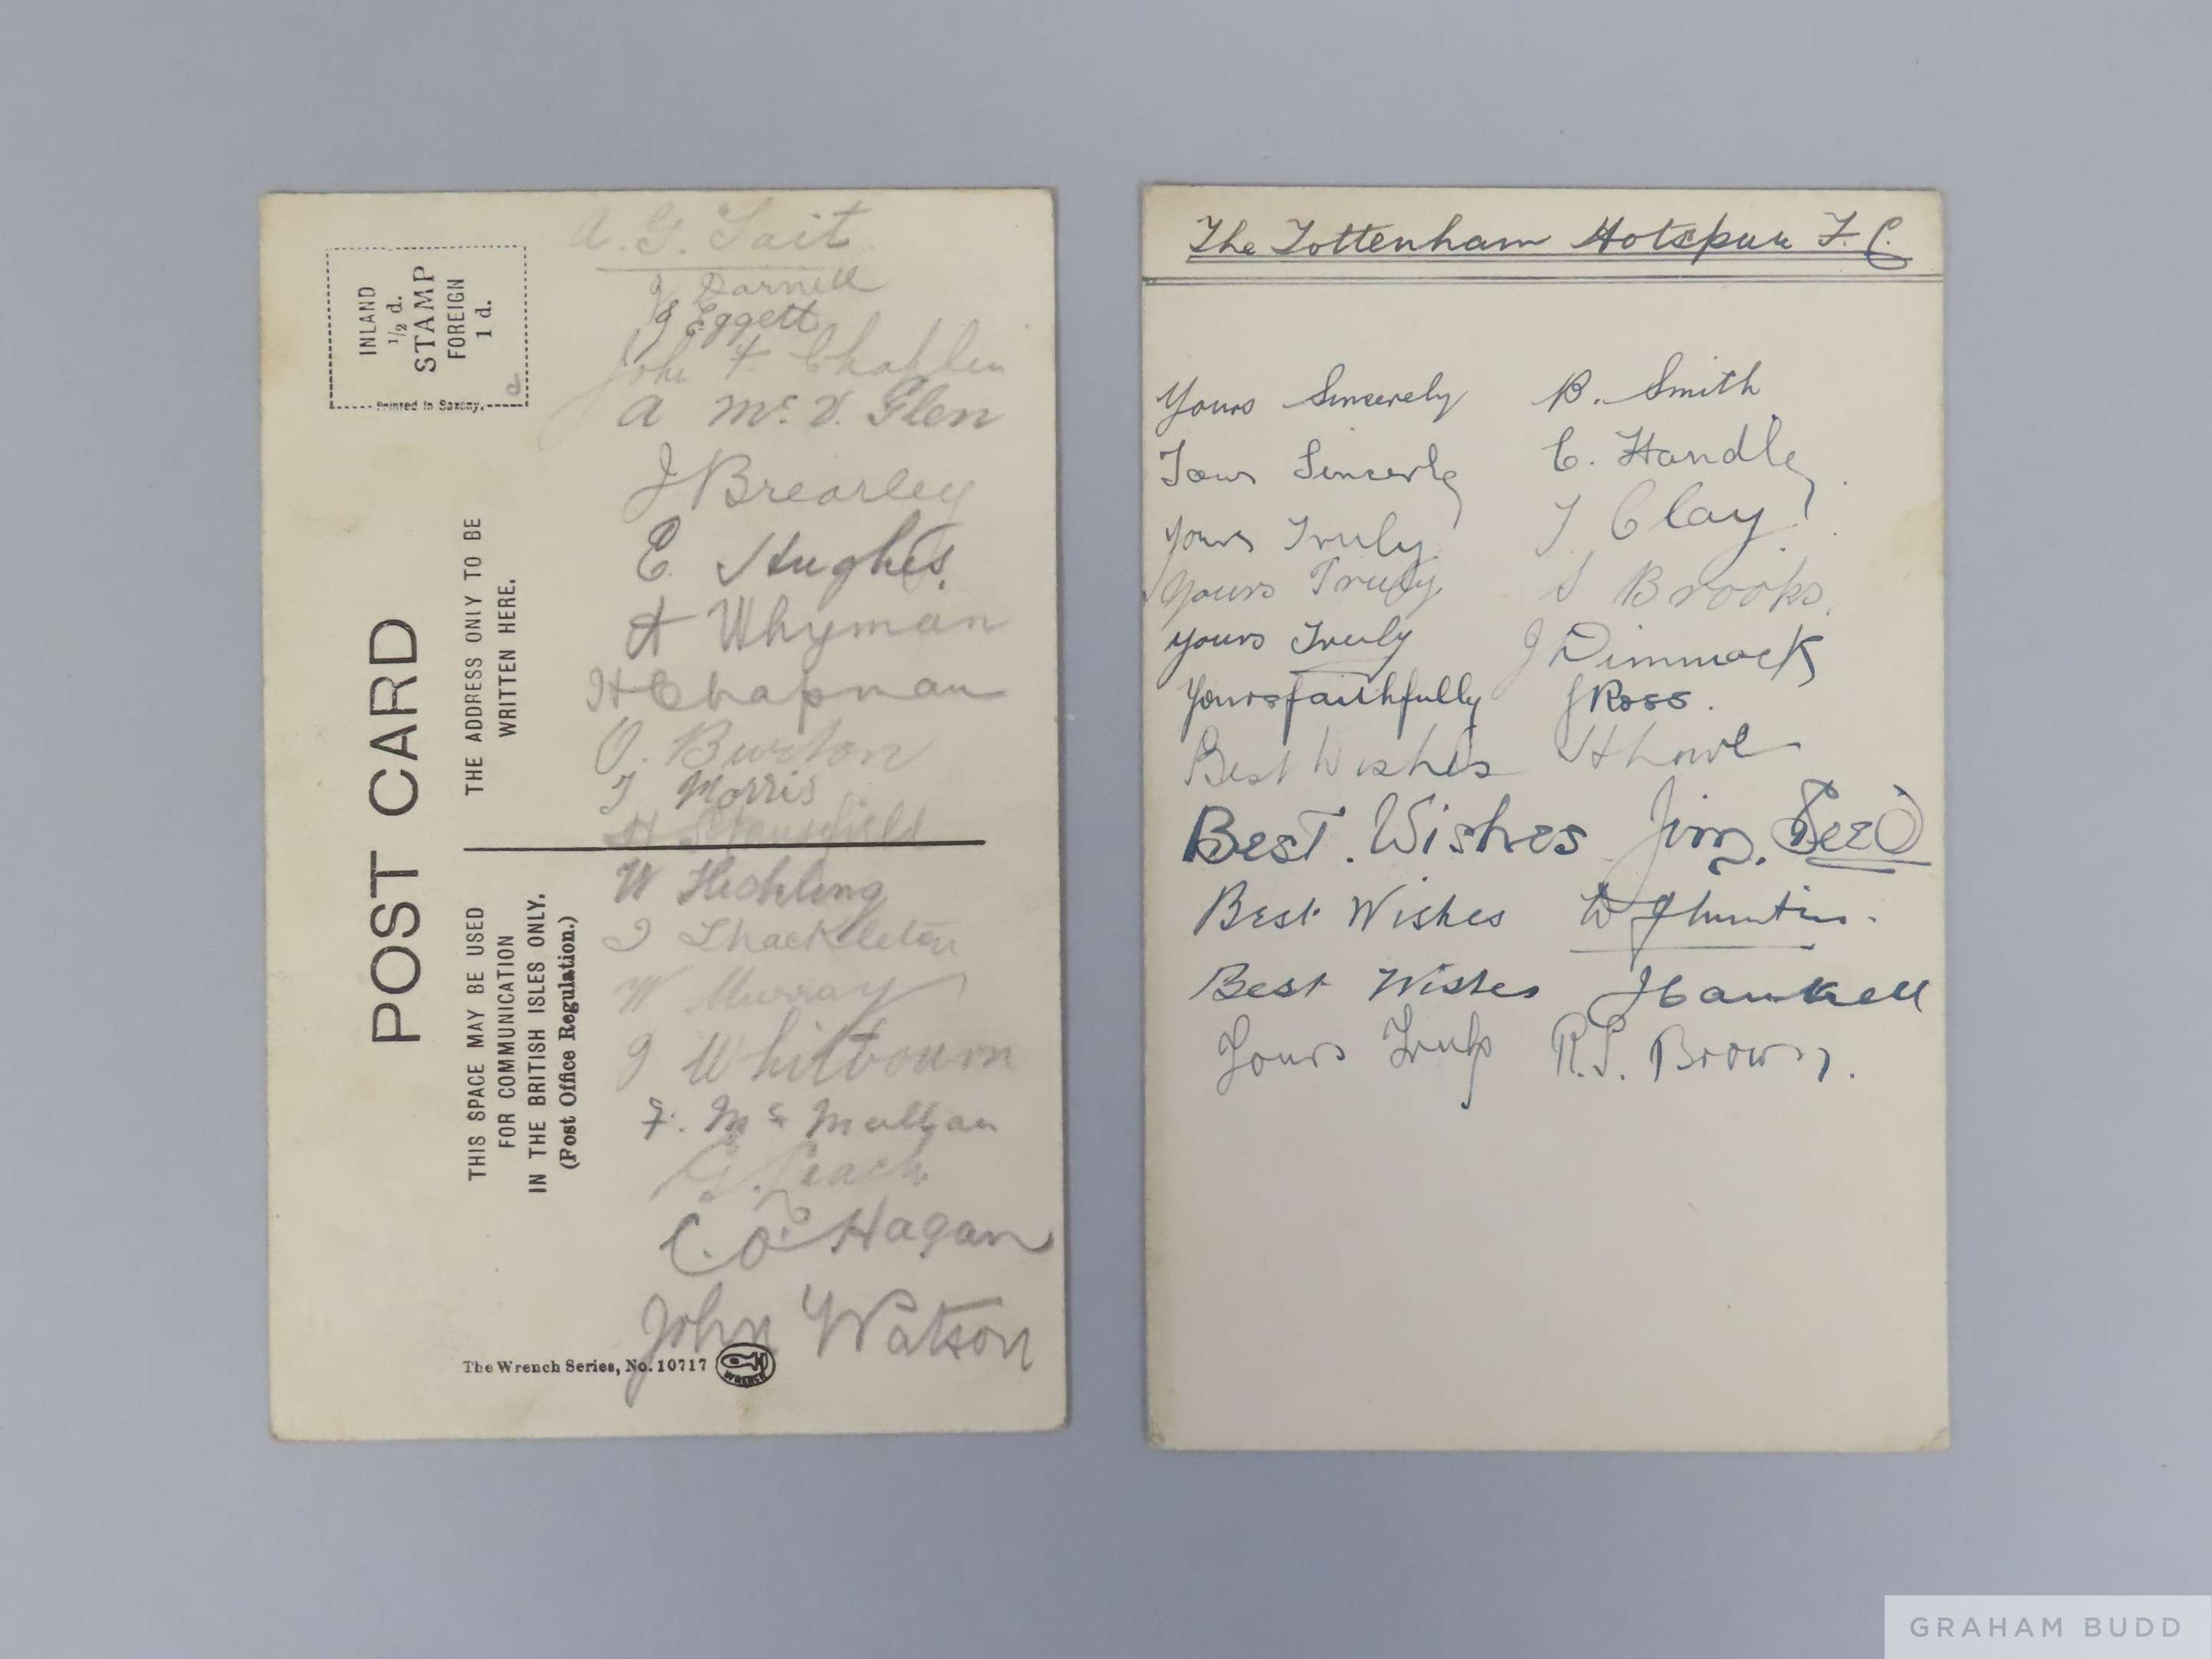 INLAND
1/2 d.
STAMP
FOREIGN
1 d.
Printed in Saxony.
POST CARD
THE ADDRESS ONLY TO BE
WRITTEN HERE.
THIS SPACE MAY BE USED
FOR COMMUNICATION
IN THE BRITISH ISLES ONLY.
(Post Office Regulation.)
A. G. Tait
J Darnell
J Eggett
John F. Chaplin
A Mc. D. Glen
J Brearley
E. Hughes.
A Whyman
H Chapman
O. Burton
T Morris
H Stansfield
W Hickling
J Shackleton
W Murray
J Whitbourn
F. Mc Mullan
G. Leach
C. O'Hagan
John Watson
The Wrench Series, No. 10717
WRENCH
The Tottenham Hotspur F.C.
Yours Sincerely B. Smith
C. Handley
Yours Truly. T Clay
Yours Truly S Brooks.
Yours Truly J Dimmock
Yours faithfully J Ross.
Best Wishes H Lowe
Best. Wishes Jim. Seed
Best Wishes
Best Wishes
Yours Truly R.S. Brown.
GRAHAM BUDD